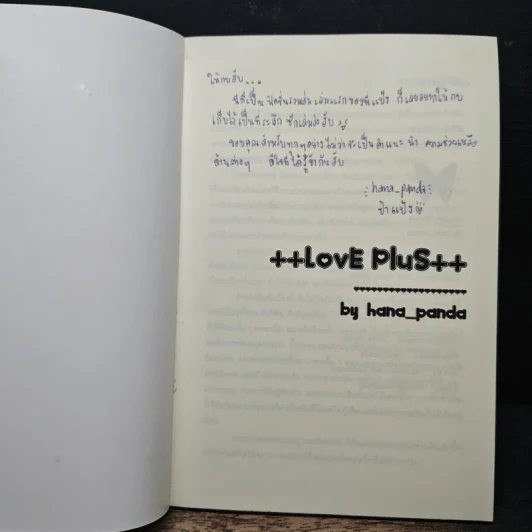 ให้กบฮับ...
นี่ก็เป็น ฟิคชั่นรวมเล่ม เล่มแรก ของพี่แป้ง ก็เลยอยากให้ กบ
เก็บไว้เป็นที่ระลึก ซักเล่มฮับ
ขอบคุณสำหรับทุกๆอย่าง ไม่ว่าจะเป็นคำแนะนำ ความช่วยเหลือ
ด้านต่างๆ ดีใจที่ได้รู้จักกันฮับ
hana_panda
ป้าแป้ง
++LovE PluS++
by hana_panda